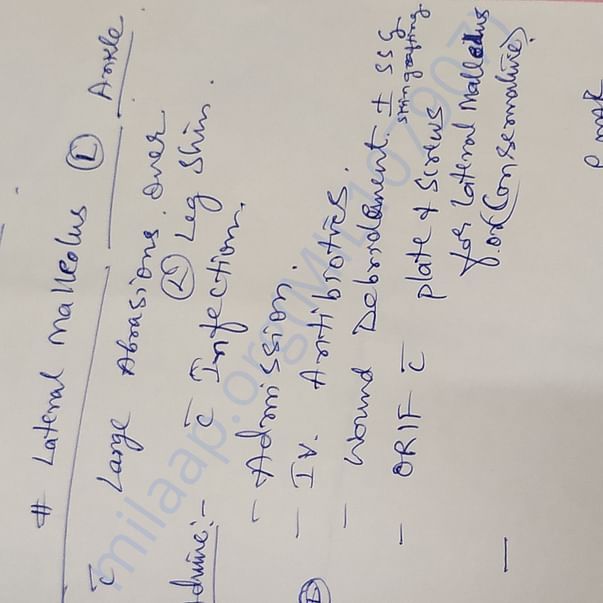 # Lateral Malleolus Ⓛ Ankle
c̄ Large Abrasions over
Ⓛ Leg Shin.
c̄ Infection.
Advice:-
- Admission.
- IV. Antibiotics.
- Wound Debridement ± SSG
skin grafting
- ORIF c̄ plate + screws
for lateral malleolus
or (Conservative)
-
milaap.org